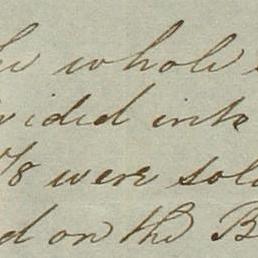 whole
vided into
78 were sol
d on the B